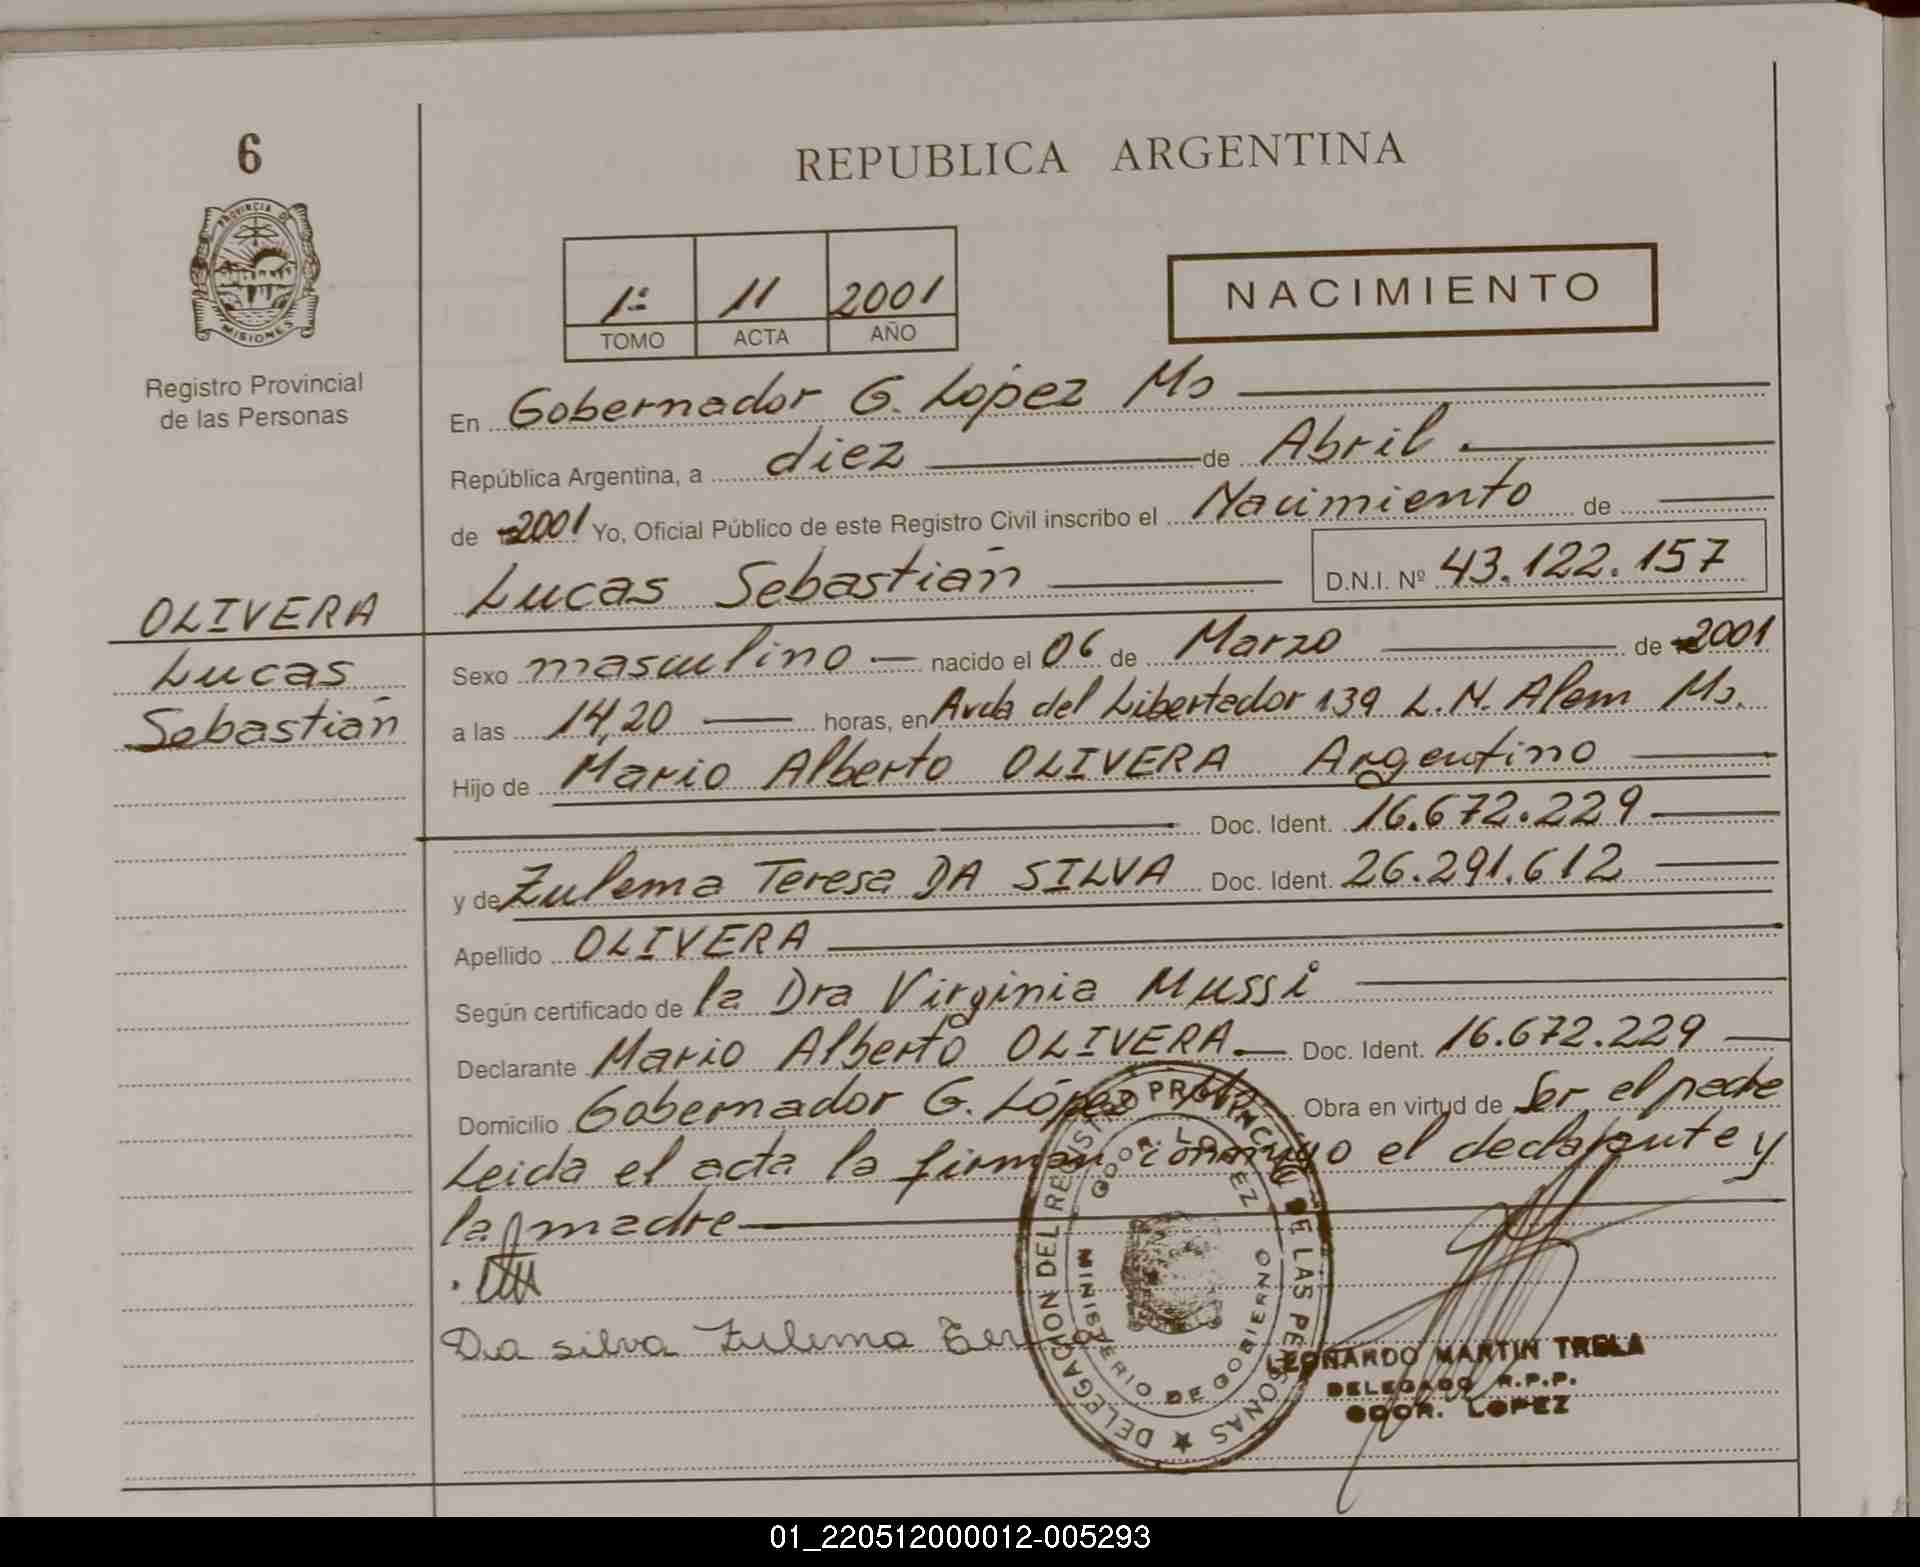 6
PROVINCIA DE
MISIONES
Registro Provincial
de las Personas
OLIVERA
Lucas
Sebastián
REPUBLICA ARGENTINA
1º 11 2001
TOMO ACTA AÑO
NACIMIENTO
En Gobernador G. López Ms
República Argentina, a diez de Abril
de 2001 Yo, Oficial Público de este Registro Civil inscribo el Nacimiento de
Lucas Sebastián D.N.I. Nº 43.122.157
Sexo masculino nacido el 06 de Marzo de 2001
a las 14,20 horas, en Avda del Libertador 139 L.N. Alem Ms.
Hijo de Mario Alberto OLIVERA Argentino
Doc. Ident. 16.672.229
y de Zulema Teresa DA SILVA Doc. Ident. 26.291.612
Apellido OLIVERA
Según certificado de la Dra Virginia Mussi
Declarante Mario Alberto OLIVERA Doc. Ident. 16.672.229
Domicilio Gobernador G. López Ms Obra en virtud de Ser el padre
Leida el acta la firman conmigo el declarante y
la madre
Da silva Zulema Teresa
DELEGACION DEL REGISTRO PROVINCIAL DE LAS PERSONAS
GDOR. LOPEZ
MINISTERIO DE GOBIERNO
LEONARDO MARTIN TRELA
DELEGADO R.P.P.
GDOR. LOPEZ
01_220512000012-005293